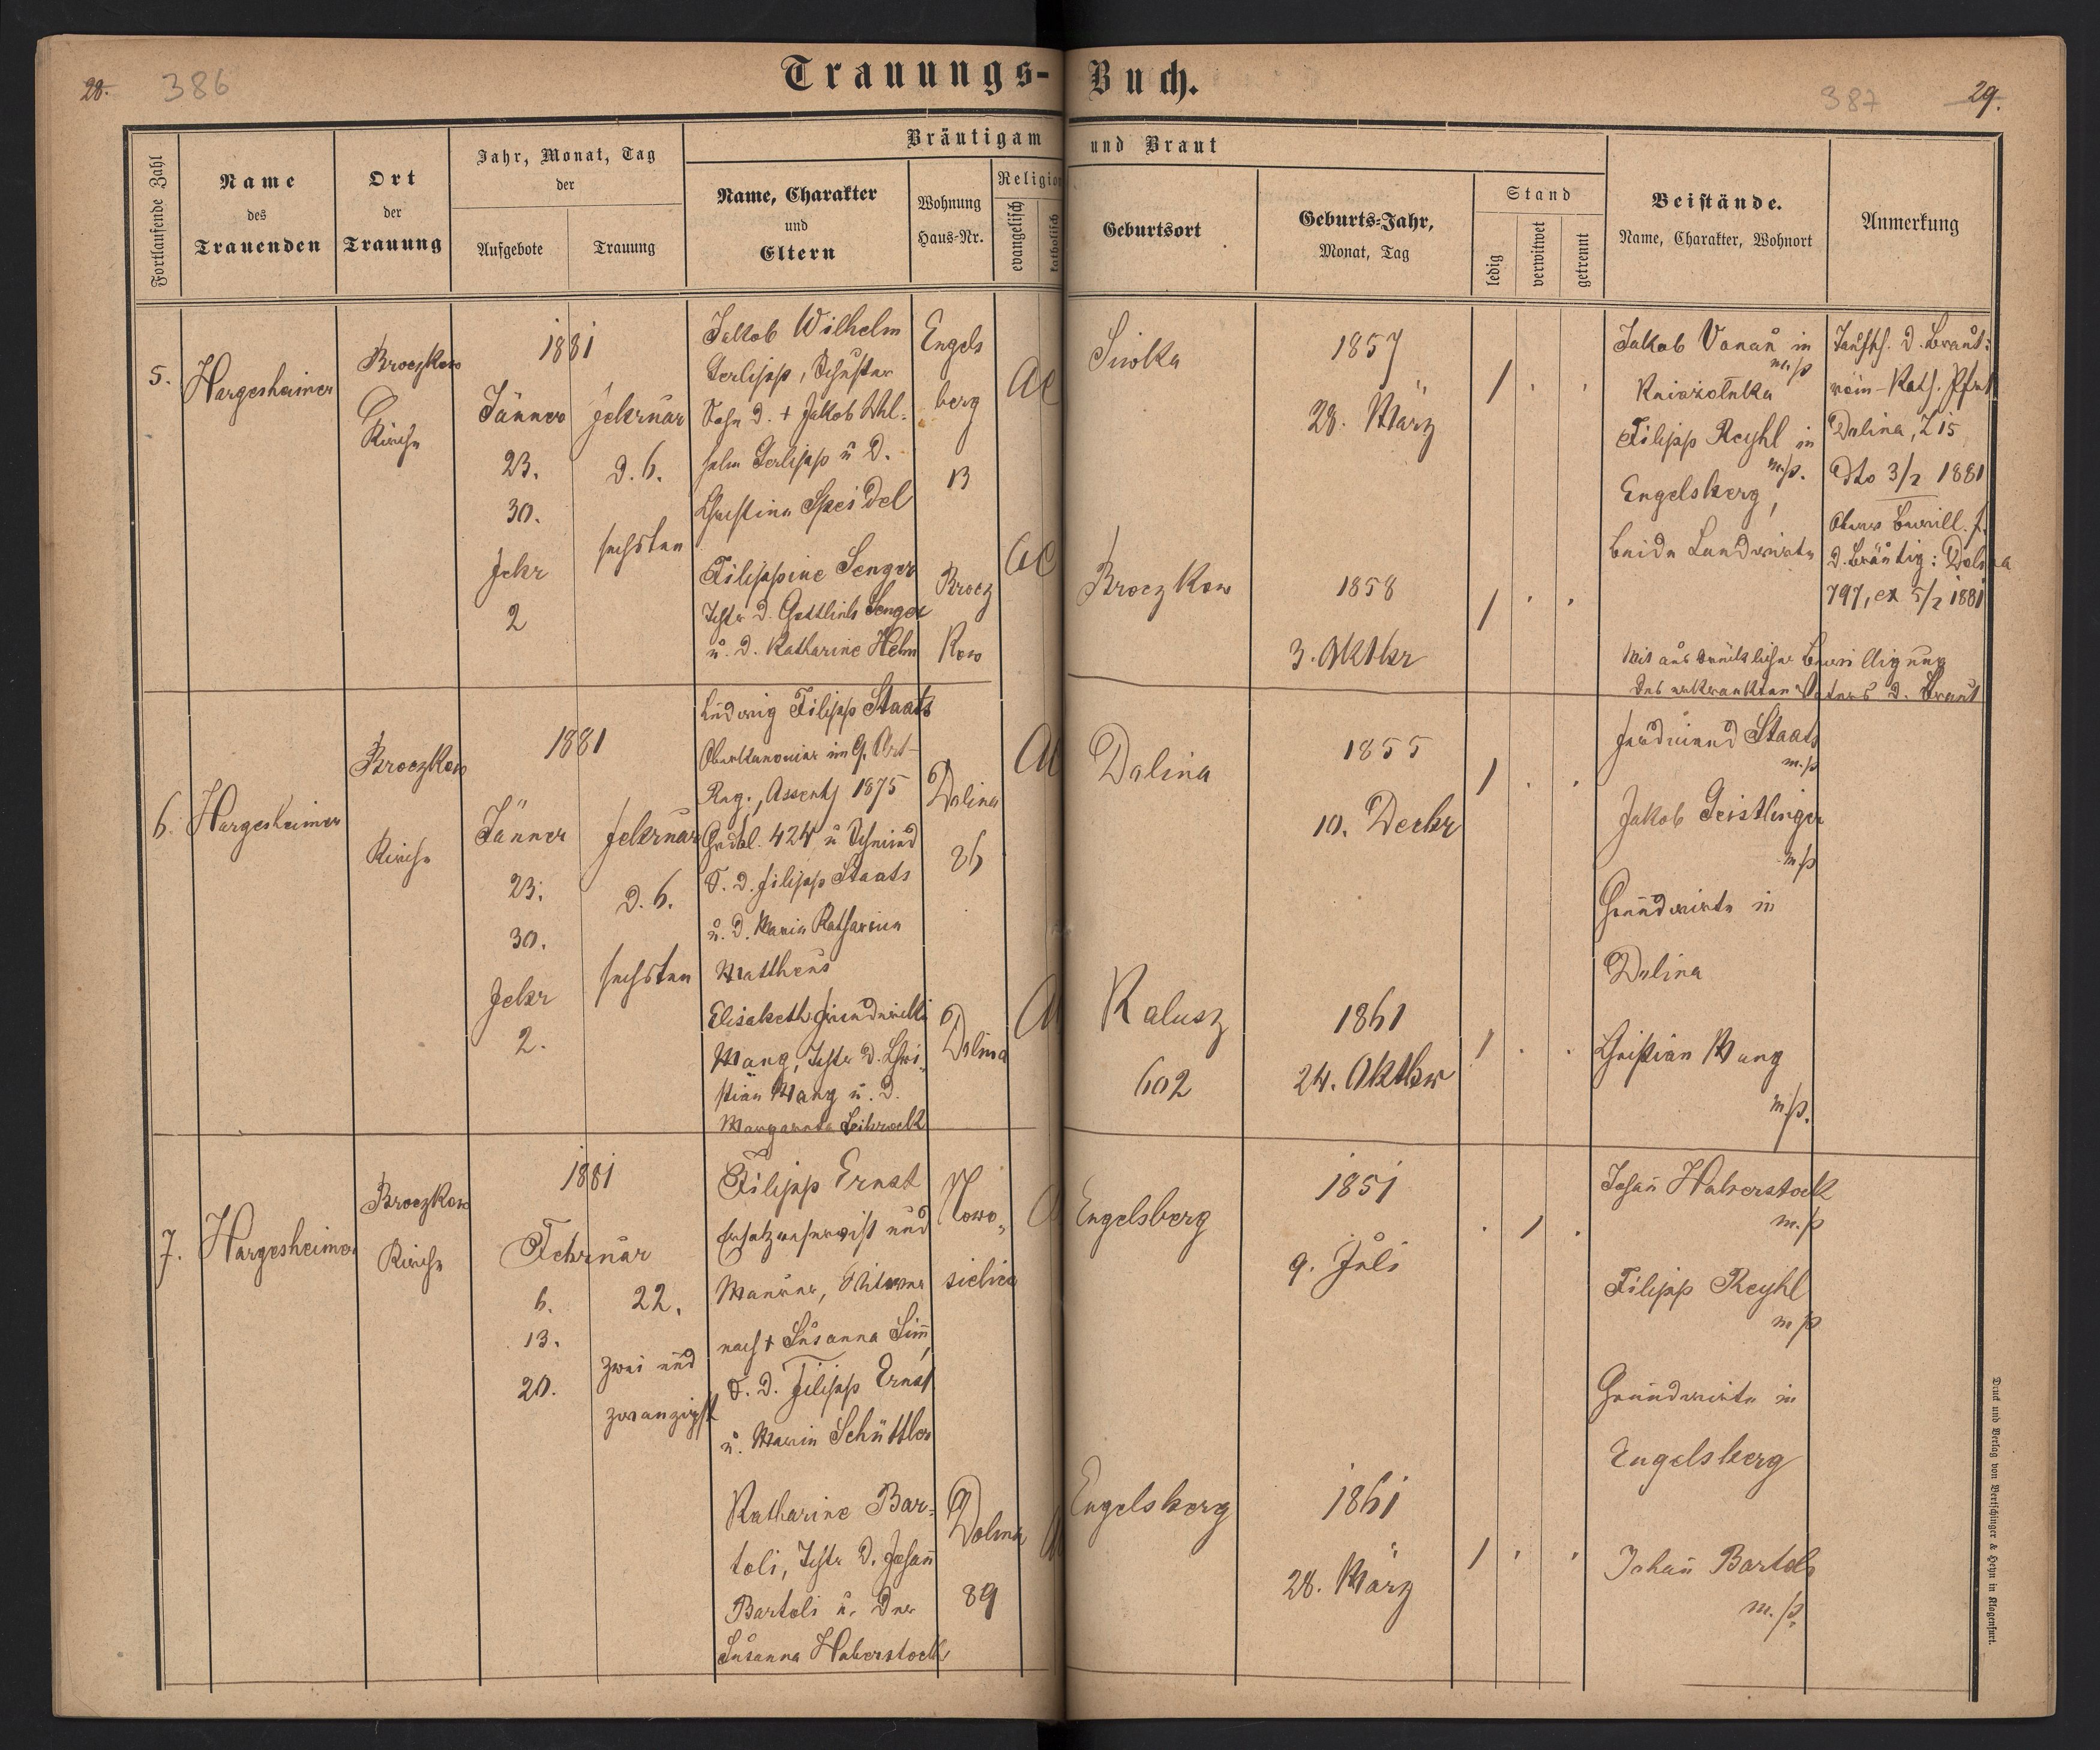 28. 386
Trauungs-Buch.
387 29.
Fortlaufende Zahl
Name
des
Trauenden
Ort
der
Trauung
Jahr, Monat, Tag
der
Aufgebote
Trauung
Bräutigam und Braut
Name, Charakter
und
Eltern
Wohnung
Haus-Nr.
Religion
evangelisch
katholisch
Geburtsort
Geburts-Jahr,
Monat, Tag
Stand
ledig
verwitwet
getrennt
Beistände.
Name, Charakter, Wohnort
Anmerkung
5.
Hargesheimer
Broczkow
Kirche
1881
Jänner
23.
30.
Febr
2
Februar
d. 6.
sechsten
Jakob Wilhelm
Gerlipp, Schuster
Sohn d. + Jakob Wil-
helm Gerlipp u. d.
Christina Speidel
Engels
berg
13
AC
Siwka
1857
28. März
1
Jakob Vanau in
m/p
Kniaziołuka
Filipp Reyhl in
m/p.
Engelsberg,
beide Landwirte
Taufsch. d. Braut:
röm-kath. Pfrt
Dolina, Z 15
dto 3/2 1881
d. Bräutig: Dolina
797, ex 5/2 1881
Filippine Senger
Tochter d. Gottlieb Senger
u. d. Katharine Helm
Brocz
kow
AC
Broczkow
1858
3. Oktbr
1
Mit ausdrücklicher Bewilligung
des erkrankten Vaters d. Braut
6.
Hargesheimer
Broczkow
Kirche
1881
Jänner
23.
30.
Febr
2.
Februar
d. 6.
sechsten
Ludwig Filipp Staats
Oberkanonier im 9. Art-
Reg., Assentj 1875
Grdbl. 424 u Schmied
S. d. Filipp Staats
u. d. Maria Katharina
Mattheus
Dolina
86
A
Dolina
1855
10. Decbr
1
Ferdinand Staats
m/p
Jakob Geistlinger
m/p
Grundwirte in
Dolina
Elisabeth
Mang, Tochter d. Chri-
stian Mang u. d.
Margareta
Dolina
A
Kalusz
602
1861
24. Oktbr
1
Christian Mang
m/p.
7.
Hargesheimer
Broczkow
Kirche
1881
Februar
6.
13.
20.
22.
zwei und
zwanzigst
Filipp Ernst
Ersatzreservist und
Maurer, Witwer
nach + Susanna Sim̄,
S. d. Filipp Ernst
u. Maria Schüttler
Nowo-
sielica
A
Engelsberg
1851
9. Juli
1
Johañ Haberstock
m/p
Filipp Reyhl
m/p
Grundwirte in
Engelsberg
Katharine Bar-
toli, Tochter d. Johañ
Bartoli u. der
Susanna Haberstock
Dolina
89
A
Engelsberg
1861
28. März
1
Johañ Bartoli
m/p.
Druck und Verlag von Bertschinger & Heyn in Klagenfurt.